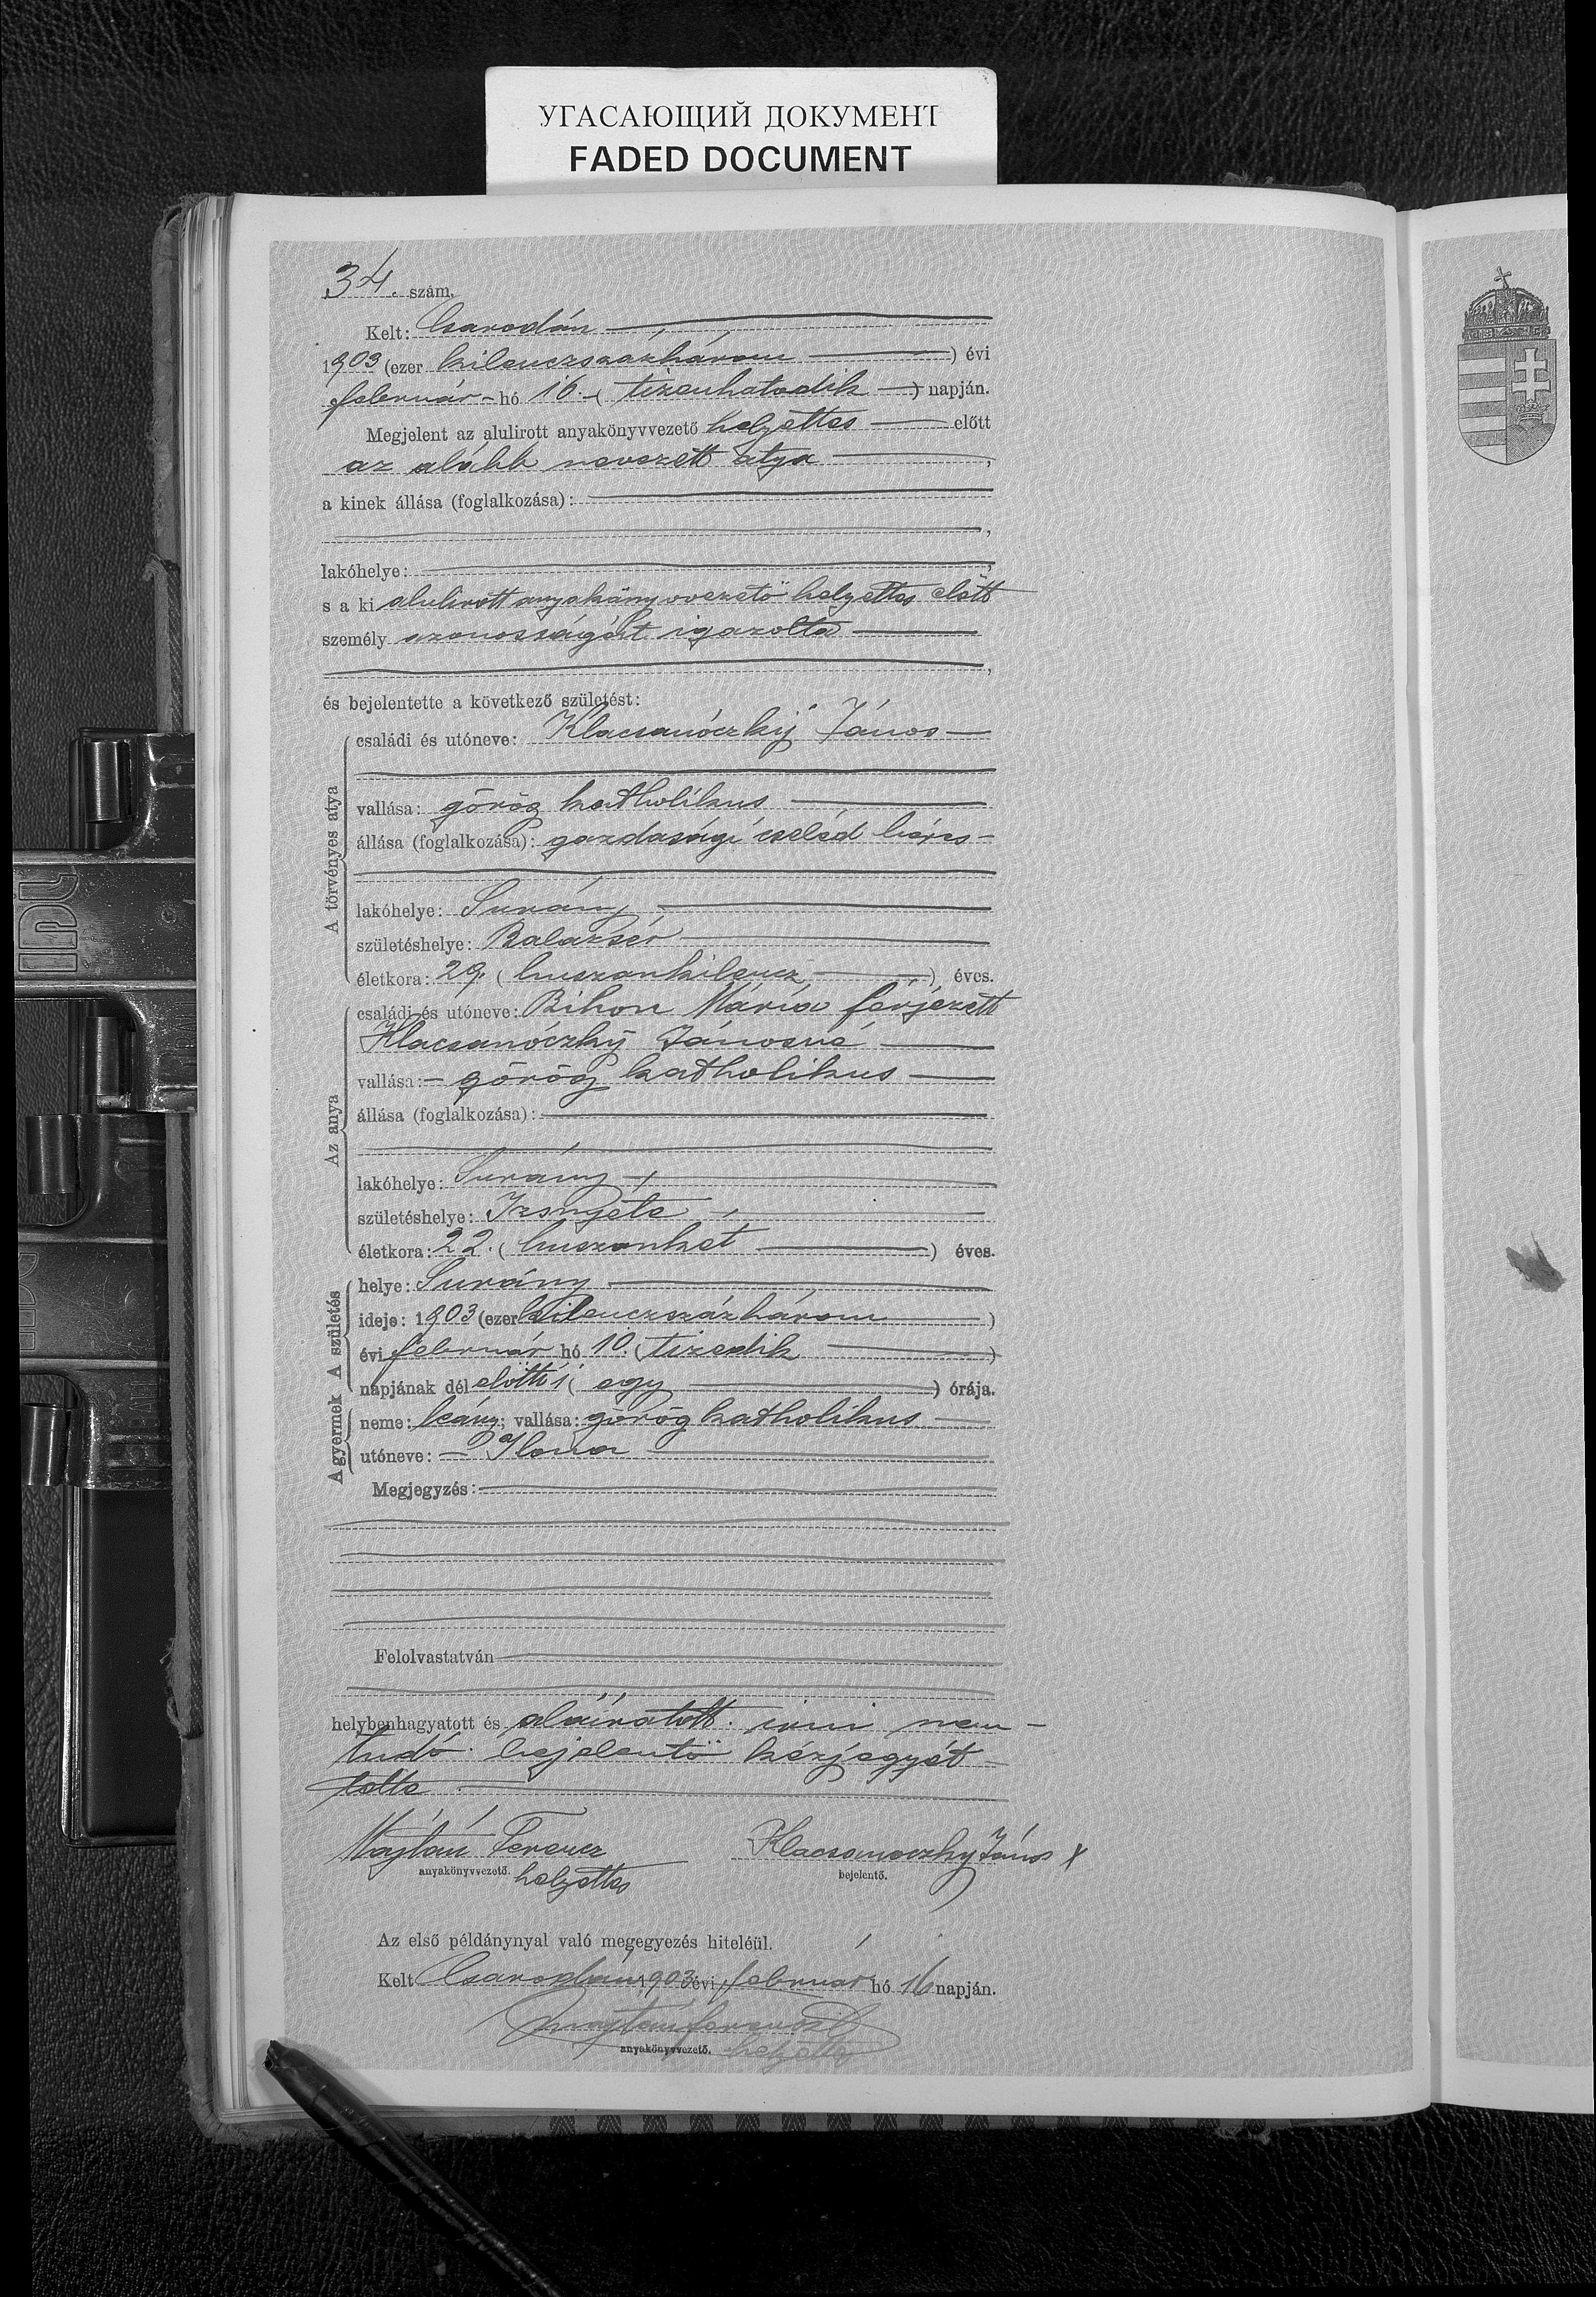 УГАСАЮЩИЙ ДОКУМЕНТ
FADED DOCUMENT
34. szám.
Kelt: Csarodán
1903 (ezer kilenczszázhárom) évi
február hó 16. (tizenhatodik) napján.
Megjelent az alulirott anyakönyvvezető helyettes előtt
az alább nevezett atya,
a kinek állása (foglalkozása):
lakóhelye:
s a ki alulirott anyakönyvvezető helyettes előtt
személy azonosságát igazolta
és bejelentette a következő születést:
A törvényes atya
családi és utóneve: Klacsanóczky János
vallása: görög katholikus
állása (foglalkozása): gazdasági cseléd béres
lakóhelye: Surány
születéshelye: Balazsér
életkora: 29. (huszonkilencz) éves.
Az anya
családi és utóneve: Bihon Mária férjezett
Klacsanóczky Jánosné
vallása: görög katholikus
állása (foglalkozása):
lakóhelye: Surány
születéshelye: Izsnyéte
életkora: 22. (huszonkét) éves.
A születés
helye: Surány
ideje: 1903 (ezer kilenczszázhárom)
évi február hó 10. (tizedik)
napjának dél előtti 1 (egy) órája.
A gyermek
neme: leány; vallása: görög katholikus
utóneve: Ilona
Megjegyzés:
Felolvastatván
helybenhagyatott és aláiratott. irni nem
tudó bejelentő kézjegyét
tette.
Majláni Ferencz Klacsanoczky János x
anyakönyvvezető. helyettes bejelentő.
Az első példánynyal való megegyezés hiteléül.
Kelt Csarodán 1903 évi február hó 16 napján.
anyakönyvvezető. helyettes
IDL